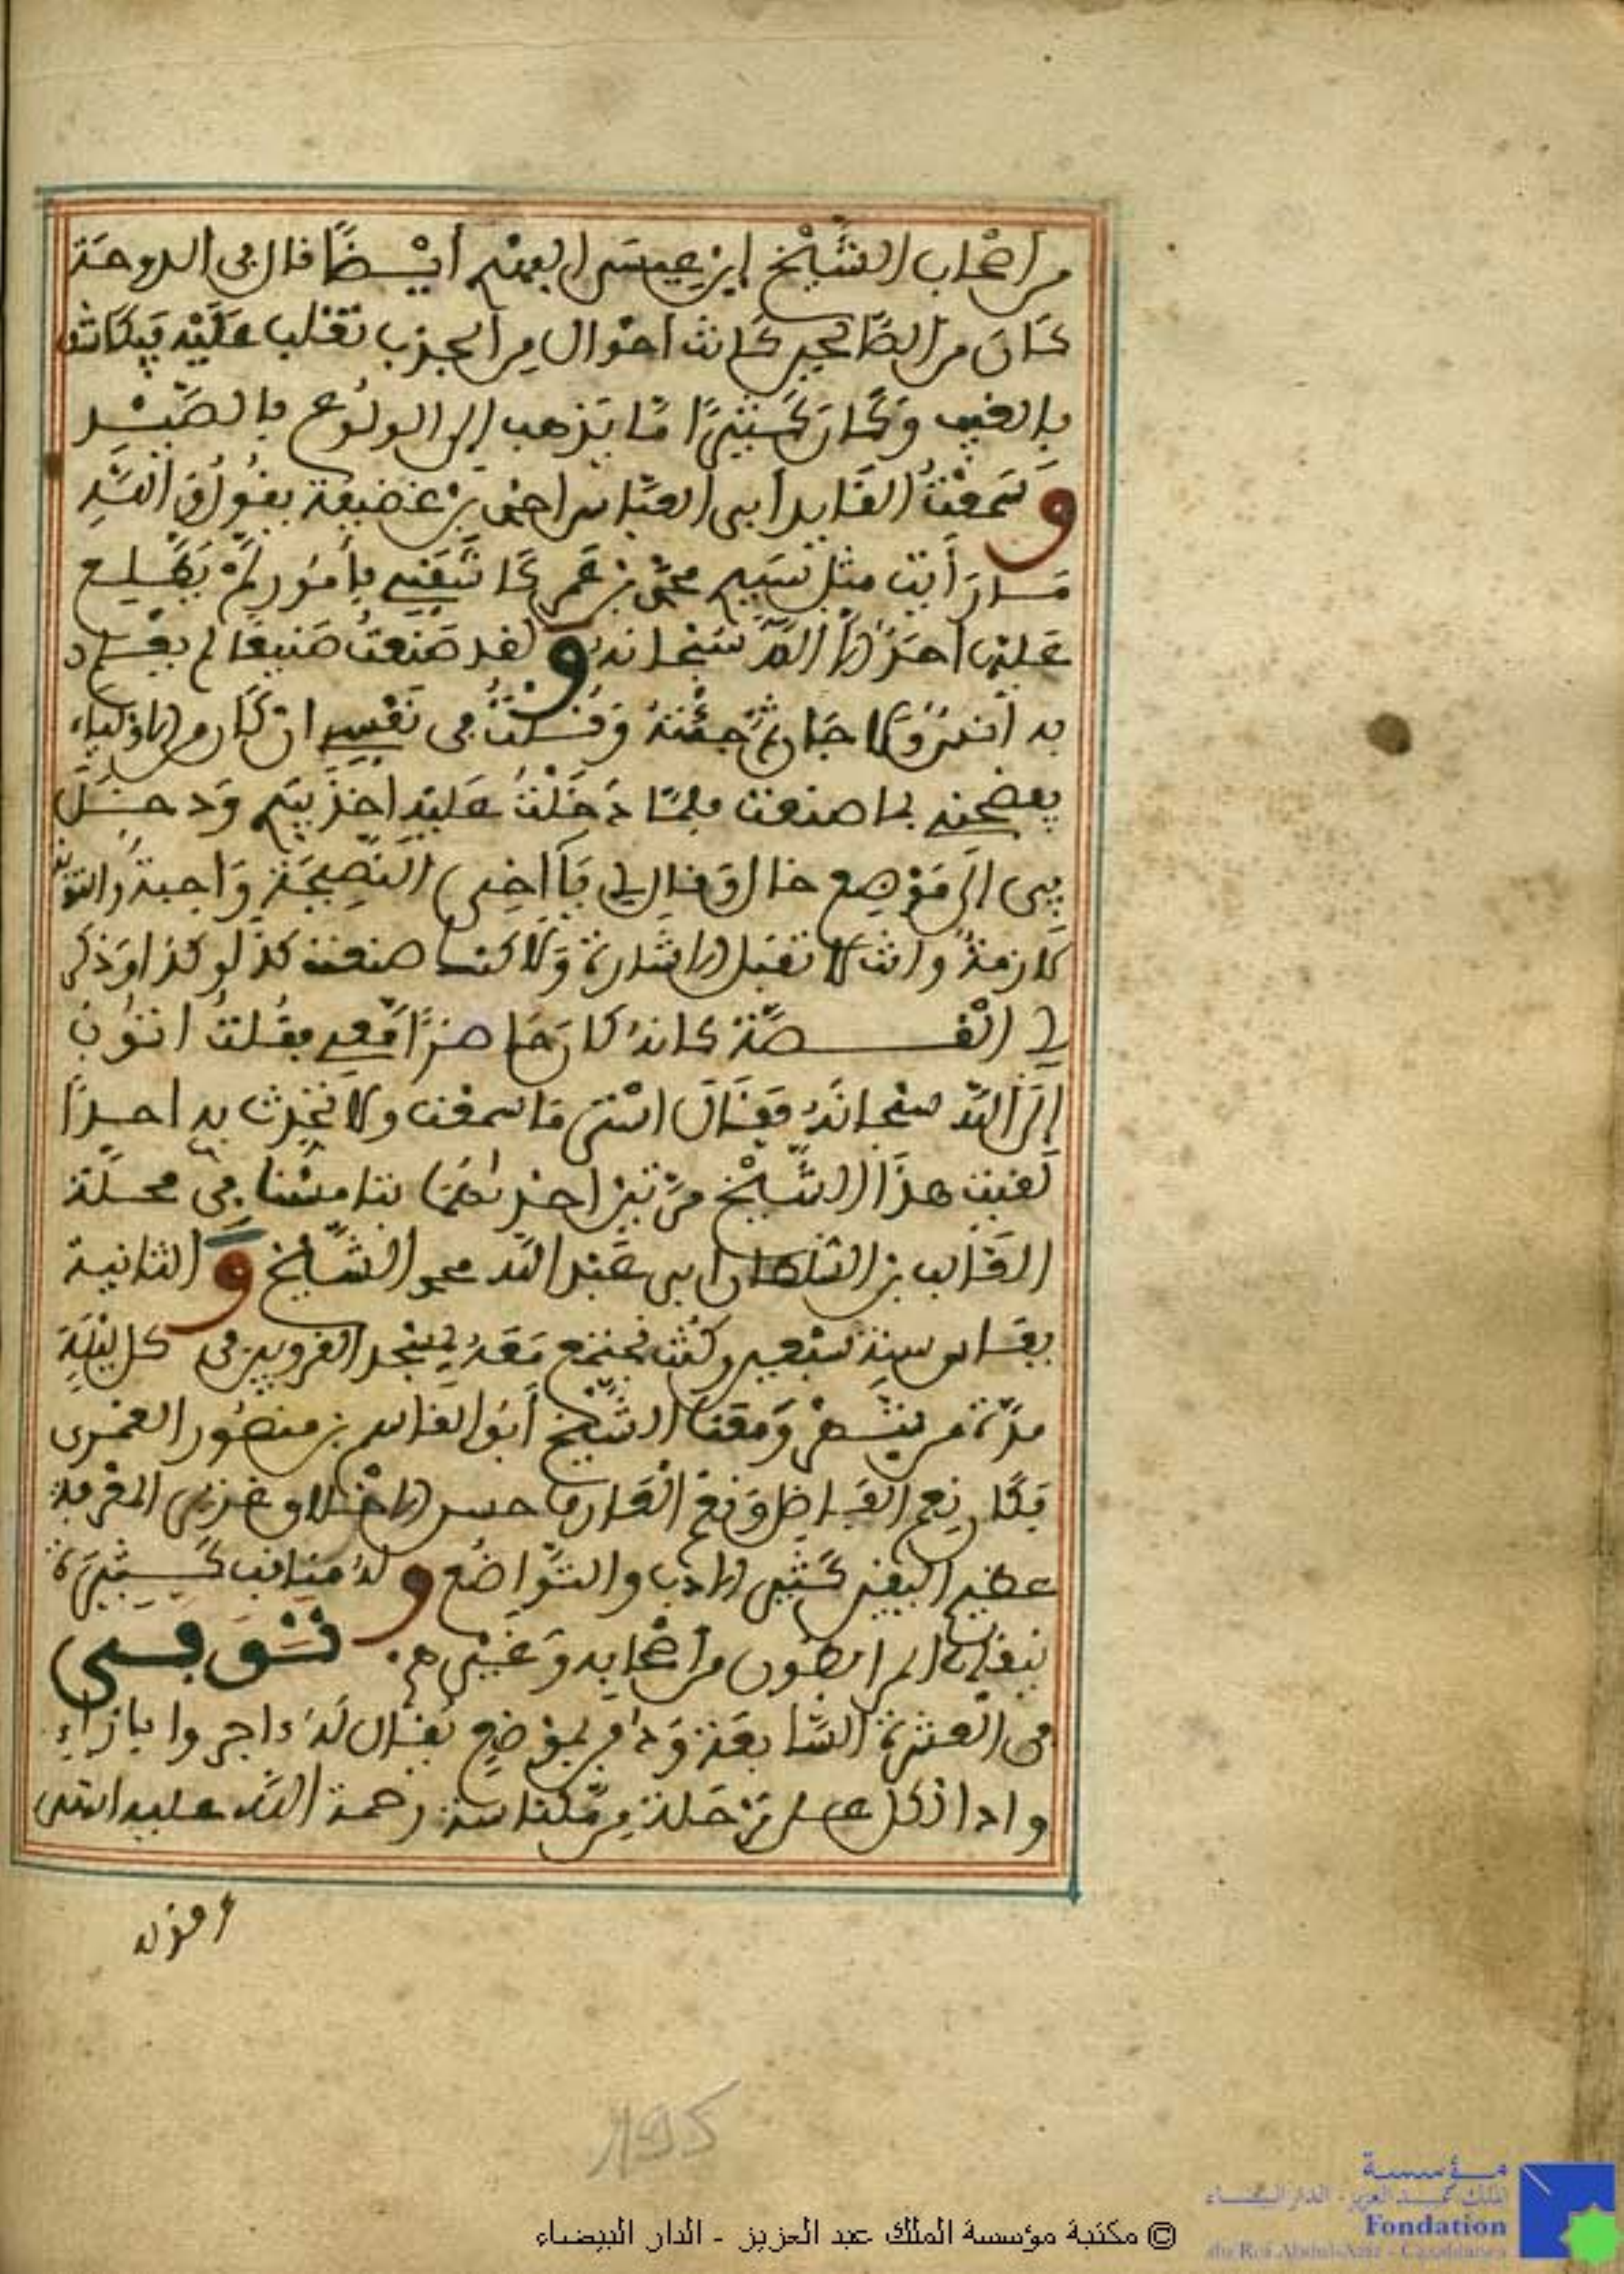 من اصحاب الشيخ ابن عيسى الفهم ايضا قال في الدوحة
كان من الصالحين كانت احوال من الجذب تغلب عليه فيكاشف
بالغيب وكان كثيرا ما يذهب الى الولوع بالصيد
وسمعت القايد ابي العباس احمد بن غضيفة يقول والله
ما رأيت مثل سيدي محمد بن عمر كاشفني بامور لم يطلع
عليها احد الا الله سبحانه ولقد صنعت صنيعا لم يعلم
به انس ولا جان ثم جئته وقلت في نفسي ان كان من الاولياء
يفضحني بما صنعت فلما دخلت عليه اخذ بيدي ودخل
بي الى موضع خال وقال لي يا اخي النصيحة واجبة والتوبة
لازمة وانت لا تقبل الاشارة ولاكنك صنعت كذا وكذا وذكر
لي القصة كانه كان حاضرا معي فقلت اتوب
الى الله سبحانه فقال استر ما سمعت ولا تخبرت به احدا
لقيت هذا الشيخ مرتين احداهما بتامسنا في محلة
الغالب بن السلطان ابي عبد الله محمد الشيخ والثانية
بفاس سنة سبعين وكنت نجتمع معه بمسجد القرويين في كل ليلة
مدة من شهر ومعنا الشيخ ابو القاسم بن منصور الغمري
فكان نعم الفاضل ونعم العارف حسن الاخلاق غزير المعرفة
عظيم اليقين كثير الادب والتواضع وله مناقب كثيرة
ينقلها المرابطون من اصحابه وغيرهم توفي
في العشرة السابعة ودفن بموضع يقال له داجروا بازاء
وادا ازكل على مرحلة من مكناسة رحمة الله عليه انتهى
وقوله
195
© مكتبة مؤسسة الملك عبد العزيز - الدار البيضاء
مؤسسة
الملك عبد العزيز - الدار البيضاء
Fondation
du Roi Abdul-Aziz - Casablanca